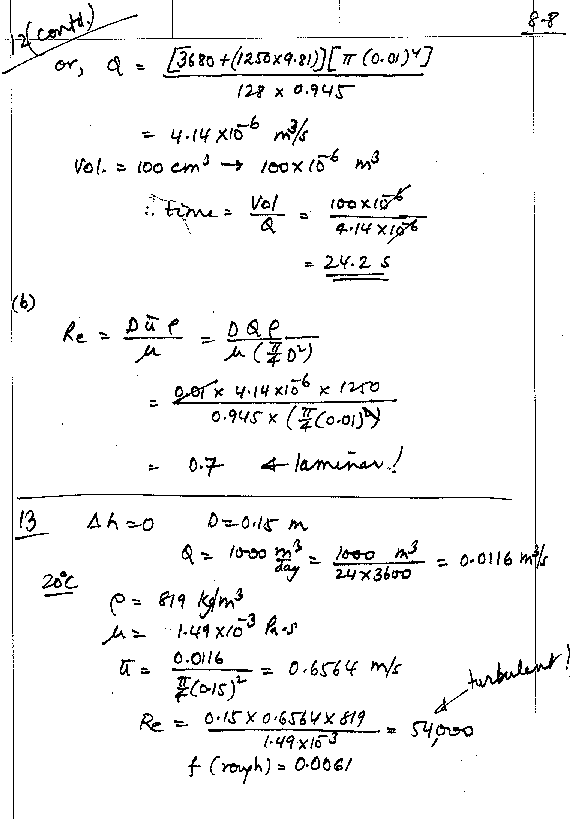 8-8
12 (contd.)
or, Q = [3680 + (1250x9.81)] [π (0.01)⁴] / 128 x 0.945
= 4.14 x 10⁻⁶ m³/s
Vol. = 100 cm³ → 100 x 10⁻⁶ m³
∴ time = Vol / Q = 100 x 10⁻⁶ / 4.14 x 10⁻⁶
= 24.2 s
(b)
Re = D ū ρ / μ = D Q ρ / μ (π/4 D²)
= 0.01 x 4.14 x 10⁻⁶ x 1250 / 0.945 x (π/4 (0.01)²)
= 0.7 ← laminar!
13 Δh = 0 D = 0.15 m
Q = 1000 m³/day = 1000 m³ / 24 x 3600 = 0.0116 m³/s
20°C
ρ = 819 kg/m³
μ = 1.49 x 10⁻³ Pa·s
ū = 0.0116 / π/4 (0.15)² = 0.6564 m/s
turbulent!
Re = 0.15 x 0.6564 x 819 / 1.49 x 10⁻³ = 54,000
f (rough) = 0.0061